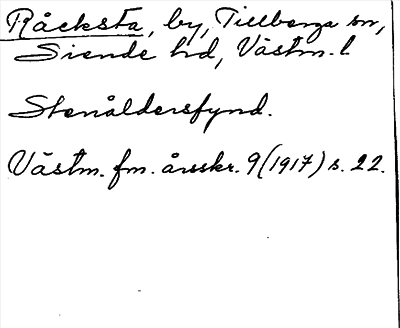 Råcksta, by, Tillberga sn,
Siende hd, Västm. l
Stenåldersfynd.
Västm. fm. årsskr. 9 (1917) s. 22.